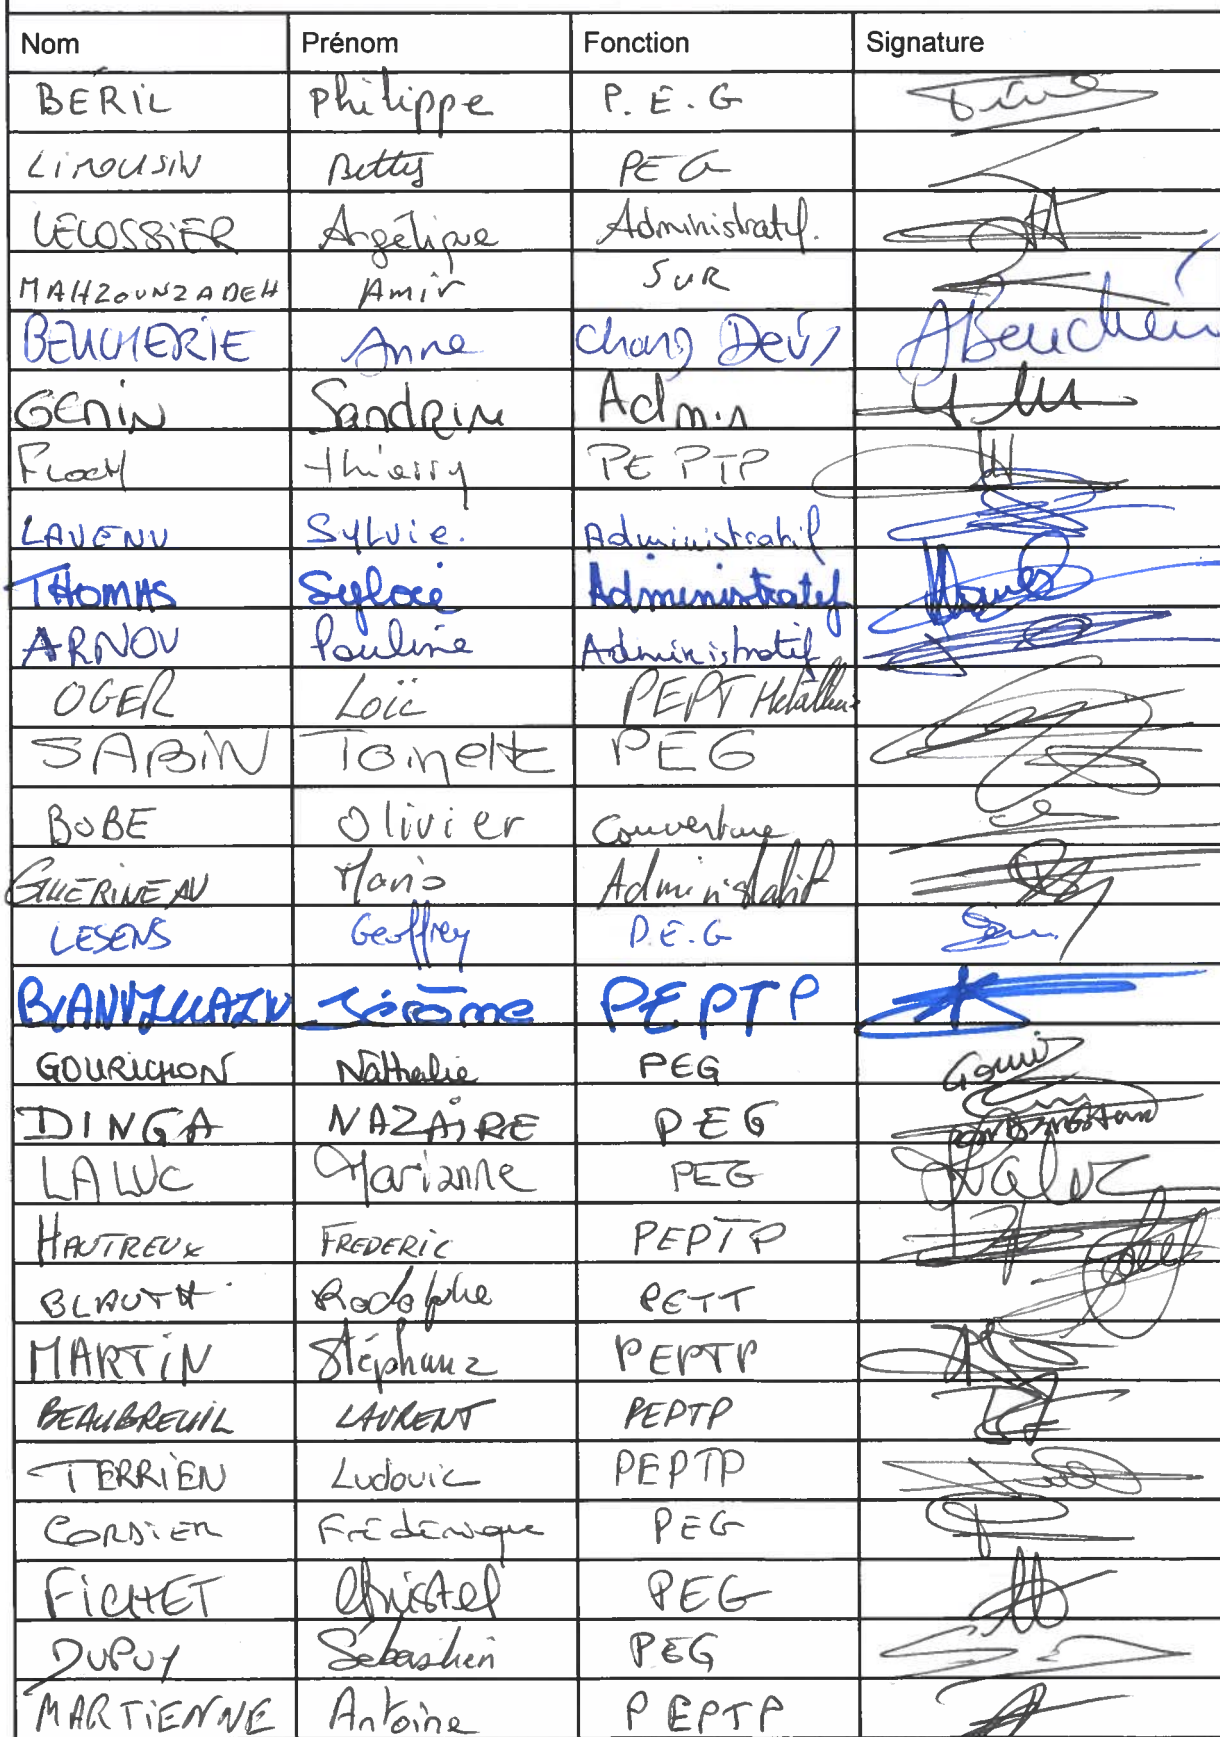 Nom Prénom Fonction Signature
BÉRIL Philippe P.E.G
LIMOUSIN Betty PEG
LECOSSIER Angélique Administratif.
MAHZOUNZADEH Amir SUR
BEUCHERIE Anne Charg Dev/ ABeucherie
GENIN Sandrine Admin
Floch Thierry PE PTP
LAVENU Sylvie. Administratif
THOMAS Sylvie Administratif
ARNOU Pauline Administratif
OGER Loïc PEPT Métallerie
SABIN PEG
BOBE Olivier Couverture
GUERINEAU Mario Administratif
LESENS Geoffrey P.E.G
BLANVILLAIN Jérôme PEPTP
GOURICHON Nathalie PEG Gouri
DINGA NAZAIRE PEG
LALUC Marianne PEG Laluc
HAUTREUX FREDERIC PEPTP
BLAUTH Rodolphe PETT
MARTIN Stéphane PEPTP
BEAUBREUIL LAURENT PEPTP
TERRIEN Ludovic PEPTP
CORDIER Frédérique PEG
FICHET Christel PEG
DUPUY Sébastien PEG
MARTIENNE Antoine PEPTP